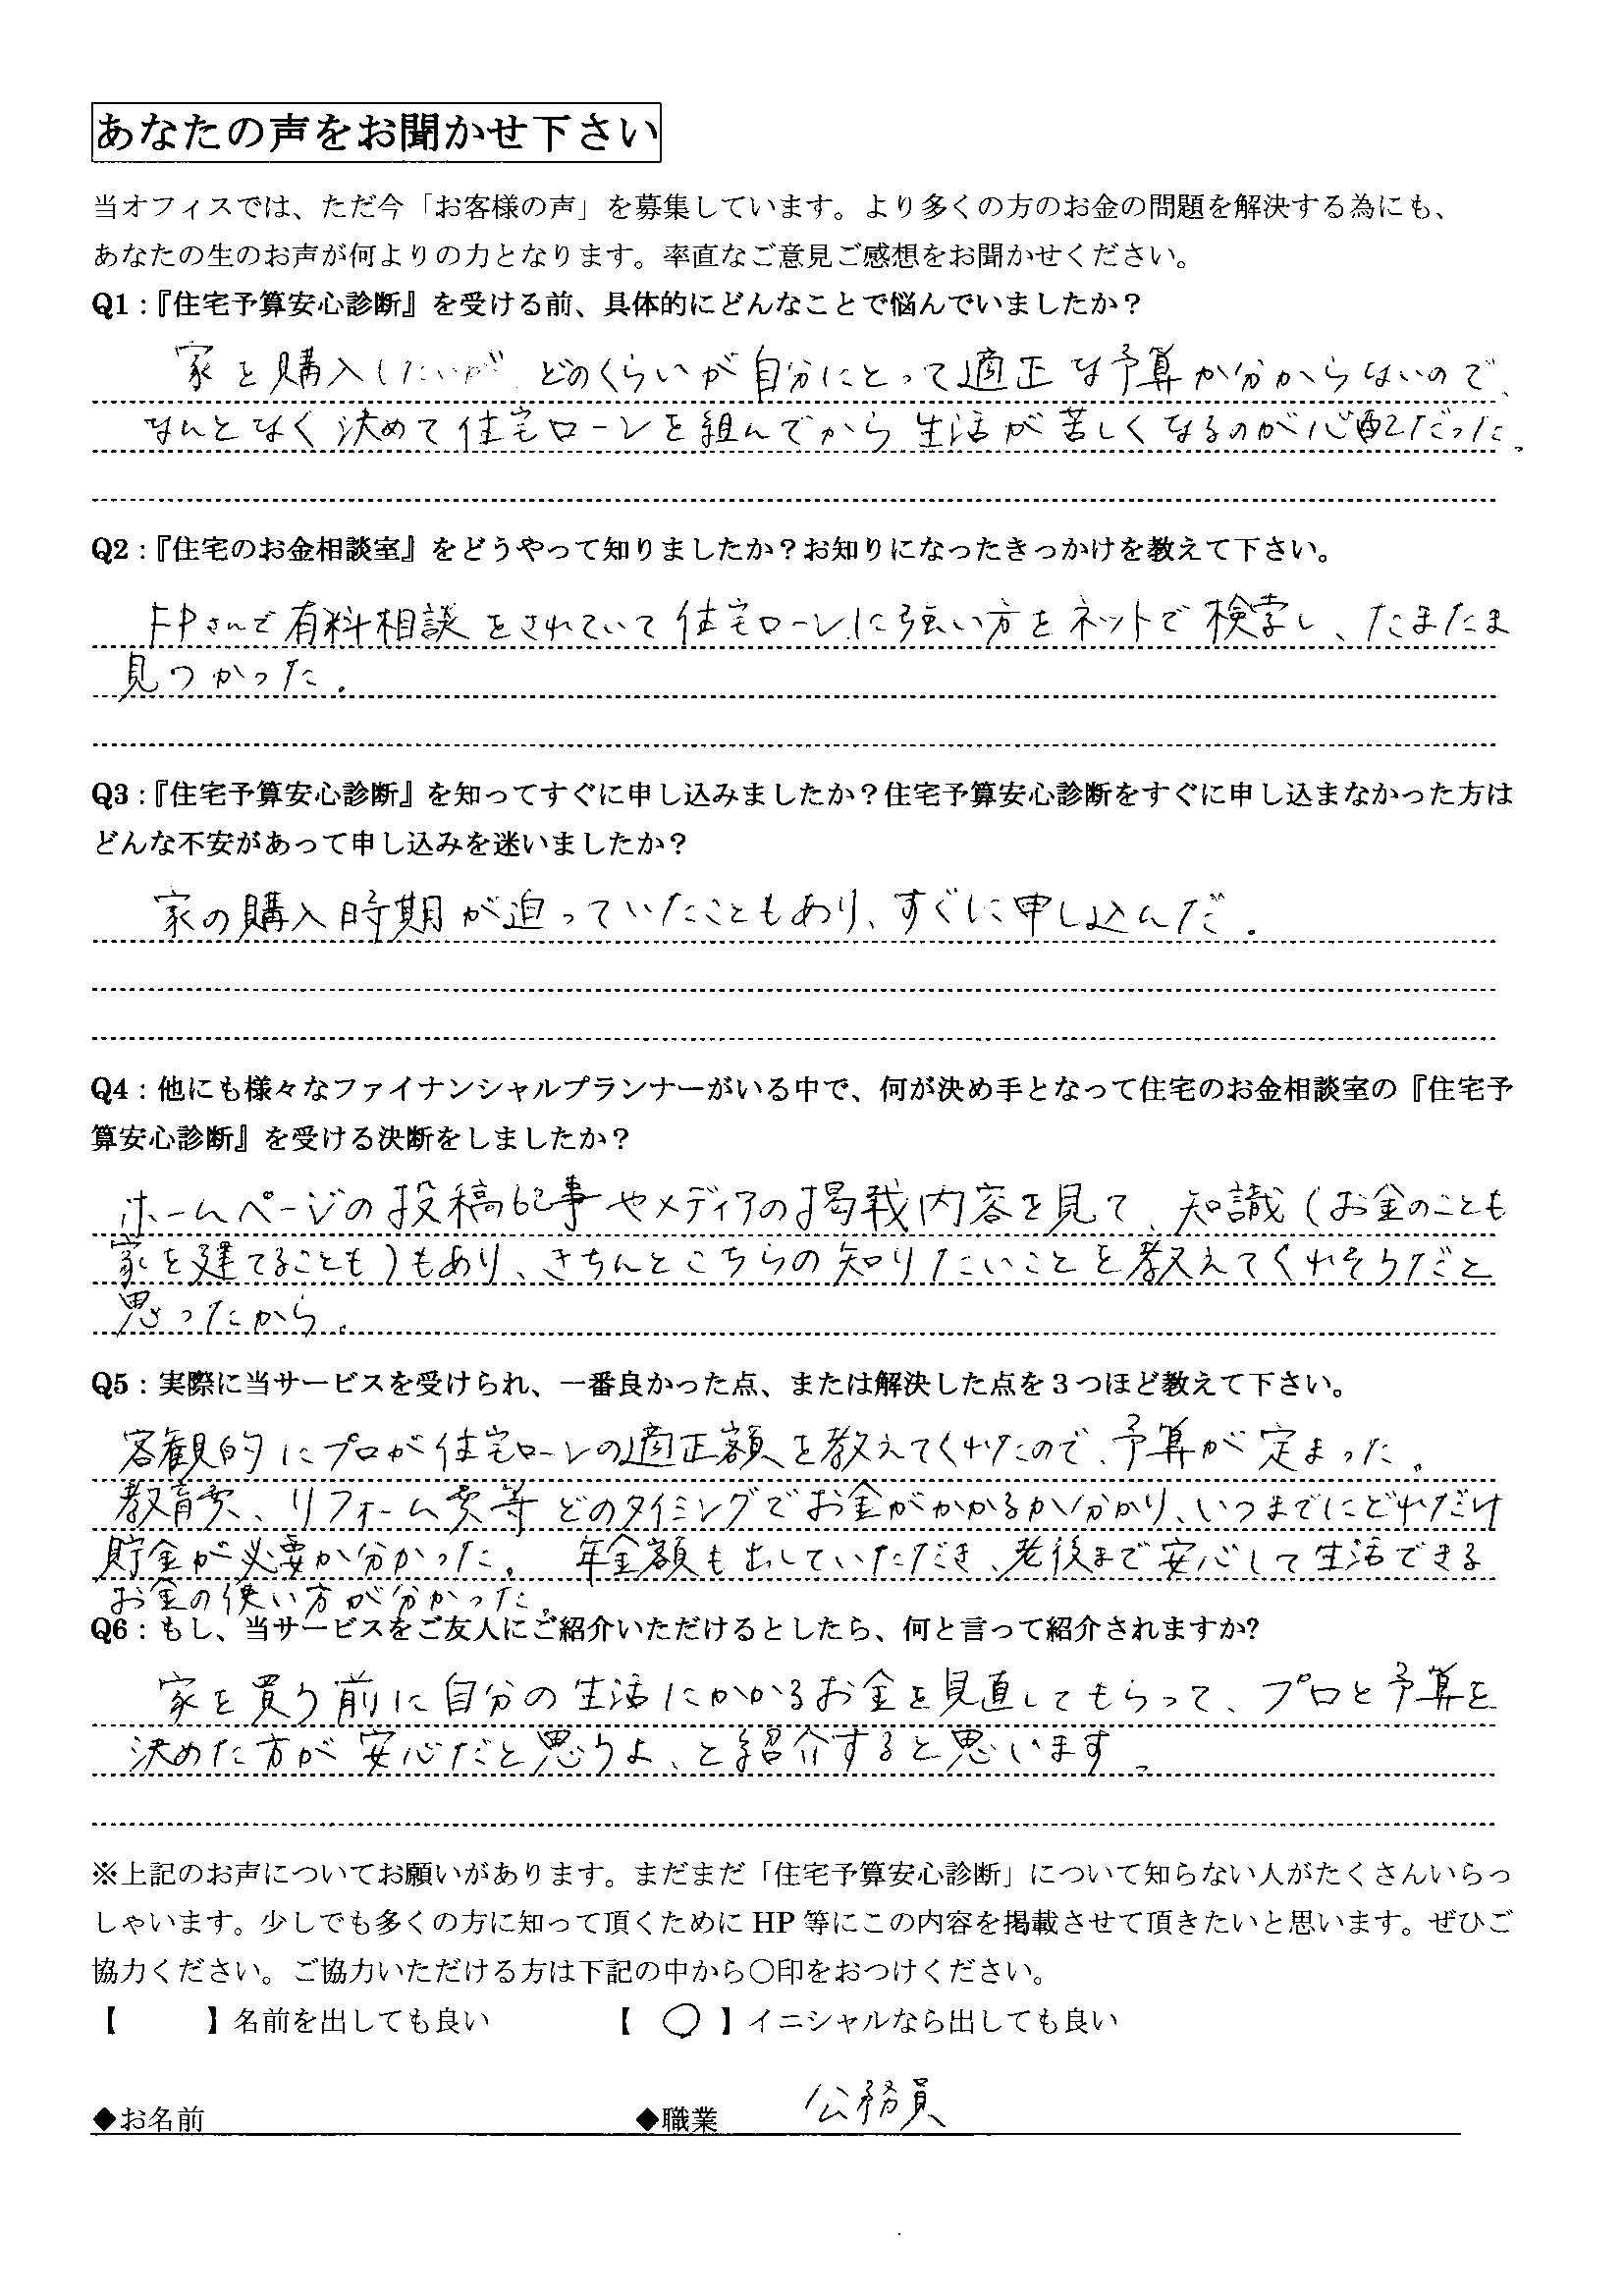 あなたの声をお聞かせ下さい
当オフィスでは、ただ今「お客様の声」を募集しています。より多くの方のお金の問題を解決する為にも、
あなたの生のお声が何よりの力となります。率直なご意見ご感想をお聞かせください。
Q1：『住宅予算安心診断』を受ける前、具体的にどんなことで悩んでいましたか？
家を購入したいが、どのくらいが自分にとって適正な予算か分からないので、
なんとなく決めて住宅ローンを組んでから生活が苦しくなるのが心配だった。
Q2：『住宅のお金相談室』をどうやって知りましたか？お知りになったきっかけを教えて下さい。
FPさんで有料相談をされていて住宅ローンに強い方をネットで検索し、たまたま
見つかった。
Q3：『住宅予算安心診断』を知ってすぐに申し込みましたか？住宅予算安心診断をすぐに申し込まなかった方は
どんな不安があって申し込みを迷いましたか？
家の購入時期が迫っていたこともあり、すぐに申し込んだ。
Q4：他にも様々なファイナンシャルプランナーがいる中で、何が決め手となって住宅のお金相談室の『住宅予
算安心診断』を受ける決断をしましたか？
ホームページの投稿記事やメディアの掲載内容を見て、知識（お金のことも
家を建てることも）もあり、きちんとこちらの知りたいことを教えてくれそうだと
思ったから。
Q5：実際に当サービスを受けられ、一番良かった点、または解決した点を３つほど教えて下さい。
客観的にプロが住宅ローンの適正額を教えてくれたので、予算が定まった。
教育費、リフォーム費等どのタイミングでお金がかかるか分かり、いつまでにどれだけ
貯金が必要か分かった。　年金額も出していただき、老後まで安心して生活できる
お金の使い方が分かった。
Q6：もし、当サービスをご友人にご紹介いただけるとしたら、何と言って紹介されますか?
家を買う前に自分の生活にかかるお金を見直してもらって、プロと予算を
決めた方が安心だと思うよ、と紹介すると思います。
※上記のお声についてお願いがあります。まだまだ「住宅予算安心診断」について知らない人がたくさんいらっ
しゃいます。少しでも多くの方に知って頂くためにHP等にこの内容を掲載させて頂きたいと思います。ぜひご
協力ください。ご協力いただける方は下記の中から○印をおつけください。
【　　　】名前を出しても良い　　　　【　○　】イニシャルなら出しても良い
◆お名前　　　　　　　　◆職業　　公務員